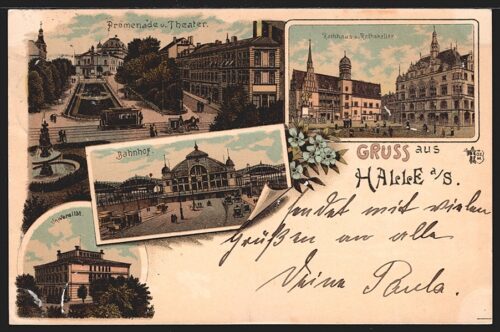 Promenade u. Theater.
Rathhaus u. Rathskeller
Bahnhof.
Universität.
GRUSS AUS
HALLE a/S.
sendet mit vielen
Grüßen an alle
Deine Paula.